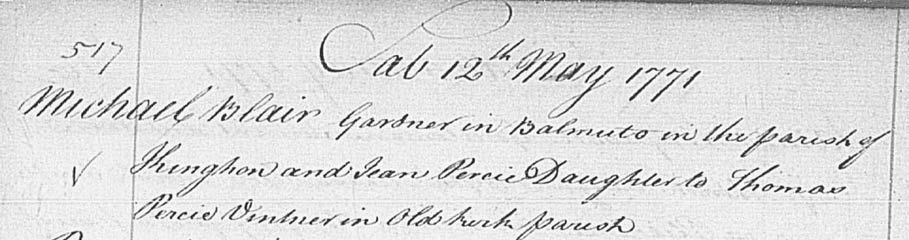 517
Sab 12th May 1771
Michael Blair Gardner in Balmuto in the parish of
Kinghorn and Jean Percie Daughter to Thomas
Percie Vintner in Old kirk parish